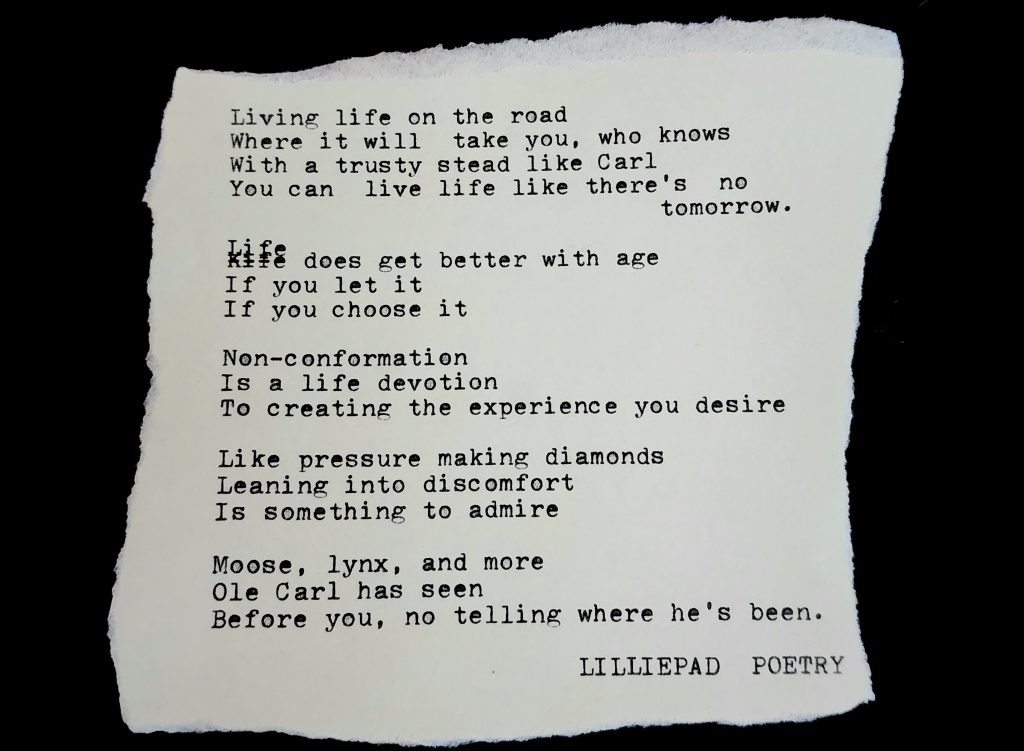 Living life on the road
Where it will take you, who knows
With a trusty stead like Carl
You can live life like there's no
tomorrow.
Life
does get better with age
If you let it
If you choose it
Non-conformation
Is a life devotion
To creating the experience you desire
Like pressure making diamonds
Leaning into discomfort
Is something to admire
Moose, lynx, and more
Ole Carl has seen
Before you, no telling where he's been.
LILLIEPAD POETRY